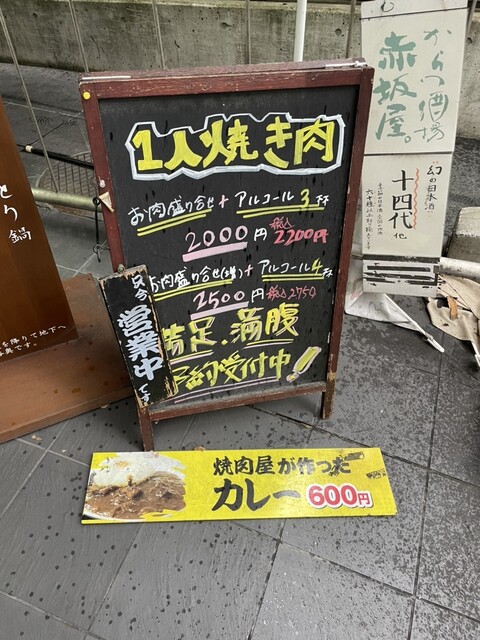 1人焼き肉
お肉盛り合せ+アルコール3杯
2000円 税込2200円
お肉盛り合せ(増)+アルコール4杯
2500円 税込2750
満足.満腹
予約受付中!
只今営業中です
焼肉屋が作った
カレー600円
からつ酒場
赤坂屋。
幻の日本酒
十四代 他
り鍋
を降りて地下へ
です。